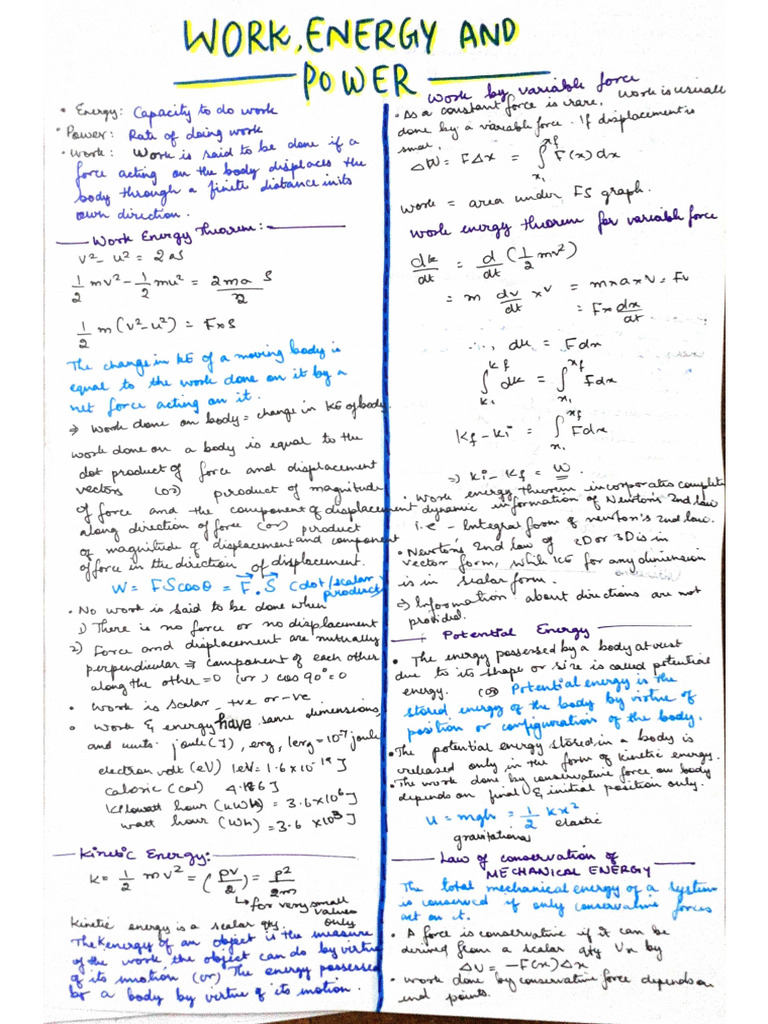 WORK, ENERGY AND
POWER
• Energy: Capacity to do work
• Power: Rate of doing work
• Work: Work is said to be done if a
force acting on the body displaces the
body through a finite distance in its
own direction.
Work Energy Theorem:-
v² - u² = 2as
1/2 mv² - 1/2 mu² = 2ma/2 S
1/2 m(v² - u²) = F×S
The change in KE of a moving body is
equal to the work done on it by a
net force acting on it.
⇒ Work done on body = change in KE of body.
Work done on a body is equal to the
dot product of force and displacement
vectors (or) product of magnitude
of force and the component of displacement
along direction of force (or) product
of magnitude of displacement and component
of force in the direction of displacement.
W = FS cosθ = F⃗.S⃗ (dot/scalar
product)
• No work is said to be done when
1) There is no force or no displacement
2) Force and displacement are mutually
perpendicular ⇒ component of each other
along the other = 0 (or) cos 90° = 0
• Work is scalar, +ve or -ve
• Work & energy have same dimensions
and units. joule (J), erg, 1erg = 10⁻⁷ joule
electron volt (eV) 1eV = 1.6 × 10⁻¹⁹ J
calorie (cal) 4.186 J
Kilowatt hour (kWh) = 3.6 × 10⁶ J
watt hour (Wh) = 3.6 × 10³ J
Kinetic Energy:-
K = 1/2 mv² = (PV/2) = P²/2m
↳ for very small
values
only
Kinetic energy is a scalar qty.
The Kenergy of an object is the measure
of the work the object can do by virtue
of its motion (or) The energy possessed
by a body by virtue of its motion.
Work by variable force
• As a constant force is rare, work is usuall
done by a variable force. If displacement is
small,
ΔW = FΔx = ∫ xf x1 F(x) dx
Work = area under FS graph.
Work energy theorem for variable force
dk/dt = d/dt (1/2 mv²)
= m dv/dt × v = m×a×v = Fv
= F× dx/dt
∴, dk = Fdx
∫ kf ki dk = ∫ xf x1 Fdx
Kf - Ki = ∫ xf x1 Fdx
⇒ Ki - Kf = W
• Work energy theorem incorporates complete
dynamic information of Newton's 2nd law
i.e - Integral form of newton's 2nd law.
• Newton's 2nd law of 2D or 3D is in
vector form, while KE for any dimension
is in scalar form.
⇒ Information about directions are not
provided.
Potential Energy
• The energy possessed by a body at rest
due to its shape or size is called potential
energy. (or) Potential energy is the
stored energy of the body by virtue of
position or configuration of the body.
• The potential energy stored in a body is
released only in the form of kinetic energy.
• The work done by conservative force on body
depends on final & initial position only.
U = mgh = 1/2 kx²
gravitational elastic
Law of conservation of
MECHANICAL ENERGY
The total mechanical energy of a system
is conserved if only conservative forces
act on it.
• A force is conservative if it can be
derived from a scalar qty Vx by
ΔV = -F(x)Δx
• Work done by conservative force depends on
end points.